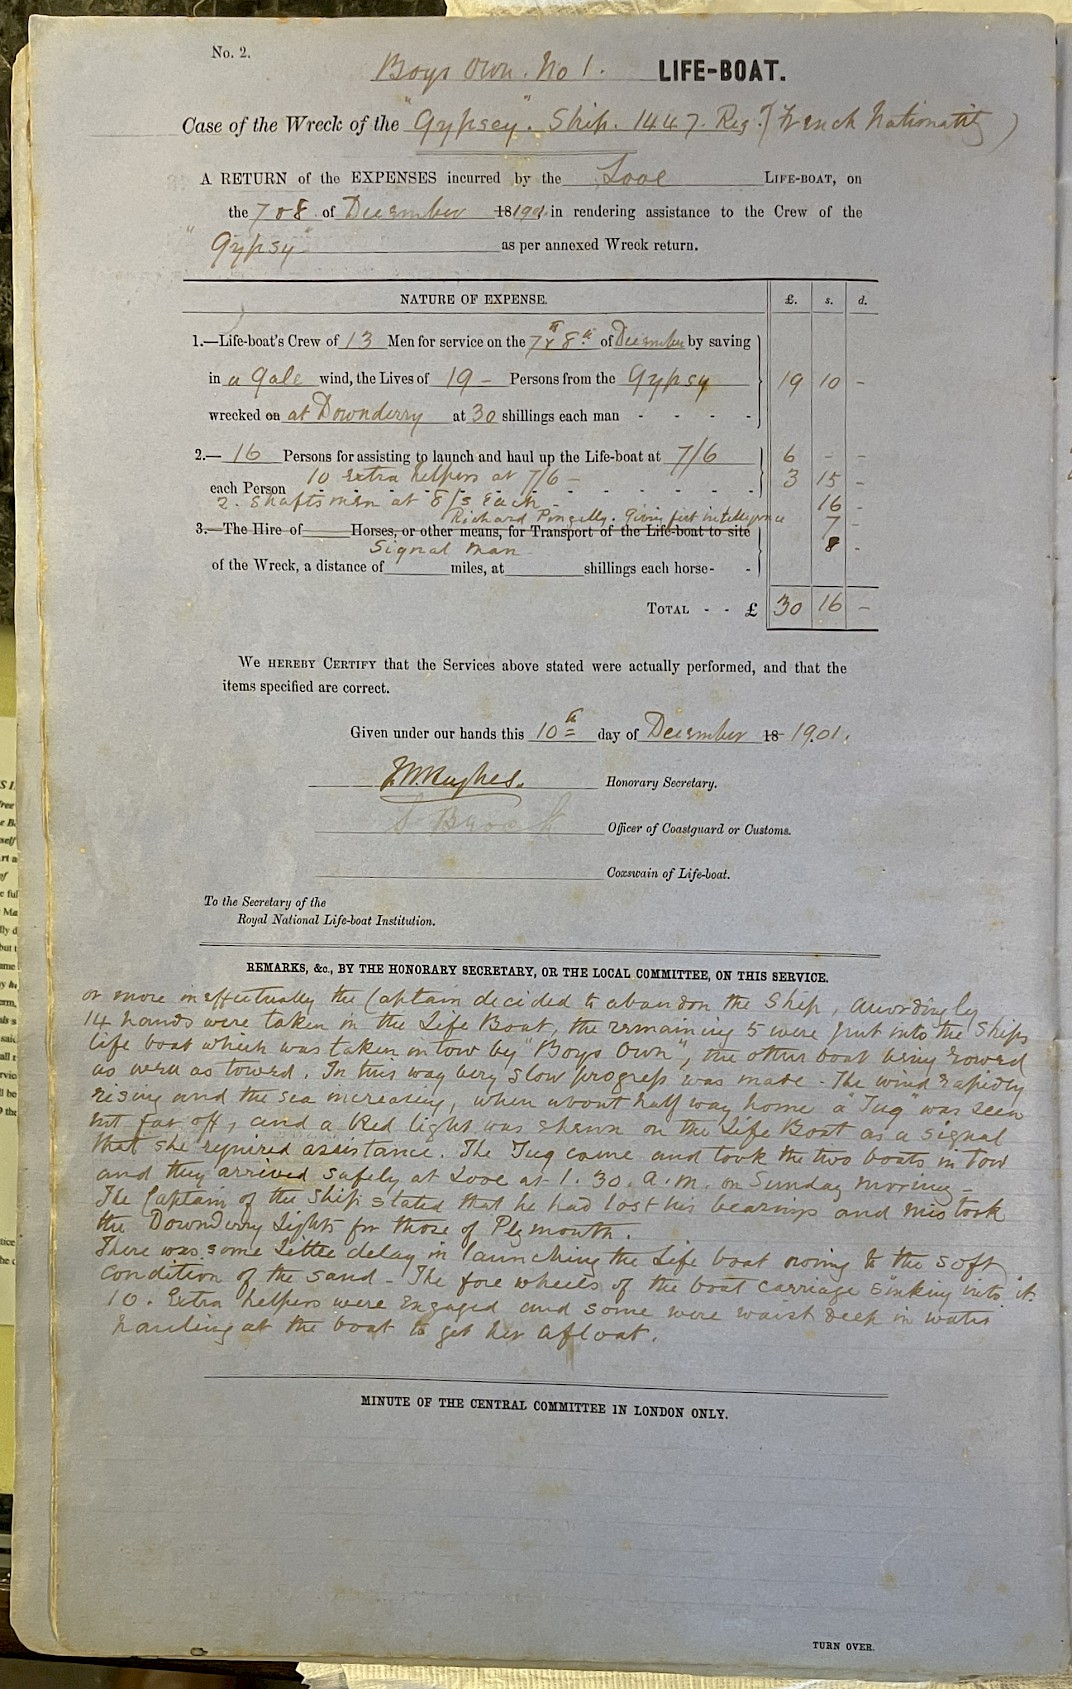 No. 2.
Boys Own. No 1. LIFE-BOAT.
Case of the Wreck of the "Gypsey". Ship. 1447. Reg. (French Nationality)
A RETURN of the EXPENSES incurred by the Looe LIFE-BOAT, on
the 7 & 8 of December 18 1901 in rendering assistance to the Crew of the
"Gypsy" as per annexed Wreck return.
NATURE OF EXPENSE. £. s. d.
1.—Life-boat's Crew of 13 Men for service on the 7th & 8th of December by saving
in a gale wind, the Lives of 19 - Persons from the Gypsy 19 10 -
wrecked on at Downderry at 30 shillings each man - - - -
2.— 16 Persons for assisting to launch and haul up the Life-boat at 7/6 6 - -
10 Extra helpers at 7/6 - 3 15 -
each Person - - - - - - - - -
2. Shaftsmen at 8/s Each - 16 -
Richard Pengelly. Giving first intelligence 7 -
3.—The Hire of Horses, or other means, for Transport of the Life-boat to site
Signal Man 8 -
of the Wreck, a distance of miles, at shillings each horse- -
TOTAL - - £ 30 16 -
We HEREBY CERTIFY that the Services above stated were actually performed, and that the
items specified are correct.
Given under our hands this 10th day of December 18 1901.
Hughes. Honorary Secretary.
Officer of Coastguard or Customs.
Coxswain of Life-boat.
To the Secretary of the
Royal National Life-boat Institution.
REMARKS, &c., BY THE HONORARY SECRETARY, OR THE LOCAL COMMITTEE, ON THIS SERVICE.
or more ineffectually the Captain decided to abandon the Ship, accordingly
14 hands were taken in the Life Boat, the remaining 5 were put into the Ships
life boat which was taken in tow by "Boys Own", the other boat being rowed
as well as towed. In this way very slow progress was made - The wind rapidly
rising and the sea increasing, when about half way home a "Tug" was seen
not far off, and a Red light was shewn on the Life Boat as a signal
that she required assistance. The Tug came and took the two boats in tow
and they arrived safely at Looe at 1.30. A.M. on Sunday morning -
The Captain of the Ship stated that he had lost his bearings and mistook
the Downderry Lights for those of Plymouth.
There was some little delay in launching the Life boat owing to the soft
condition of the sand - The fore wheels of the boat carriage sinking into it
10. Extra helpers were Engaged and some were waist deep in water
hauling at the boat to get her afloat.
MINUTE OF THE CENTRAL COMMITTEE IN LONDON ONLY.
TURN OVER.